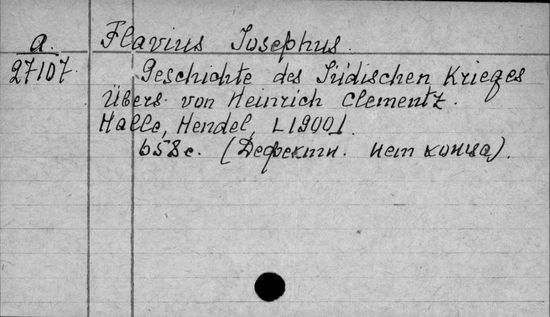 a. Flavius Josephus.
27107. Geschichte des Jüdischen Krieges
Übers. von Heinrich Clementz.
Halle, Hendel, [1900].
658 с. (Дефектн. нет конца).